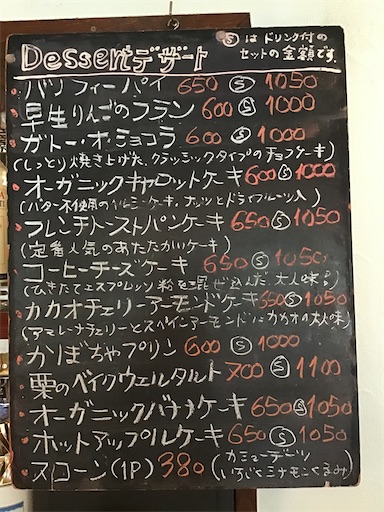 Dessert デザート
Ⓢ は ドリンク付の
セットの金額です。
バノフィーパイ 650 Ⓢ 1050
早生りんごのフラン 600 Ⓢ 1000
ガトー・オ・ショコラ 600 Ⓢ 1000
(しっとり焼き上げた、クラシックタイプのチョコケーキ)
オーガニックキャロットケーキ 600 Ⓢ 1000
(バター不使用のヘルシーケーキ、ナッツとドライフルーツ入)
フレンチトーストパンケーキ 650 Ⓢ 1050
(定番人気のあたたかいケーキ)
コーヒーチーズケーキ 650 Ⓢ 1050
(ひきたてエスプレッソ粉を混ぜ込んだ、大人味♪)
カカオチェリーアーモンドケーキ 650 Ⓢ 1050
(アマレーナチェリーとスペインアーモンドにカカオの大人味)
かぼちゃプリン 600 Ⓢ 1000
栗のベイクウェルタルト 700 Ⓢ 1100
オーガニックバナナケーキ 650 Ⓢ 1050
ホットアップルケーキ 650 Ⓢ 1050
スコーン(1P) 380 (カミューデーツ
いちじくシナモンくるみ)